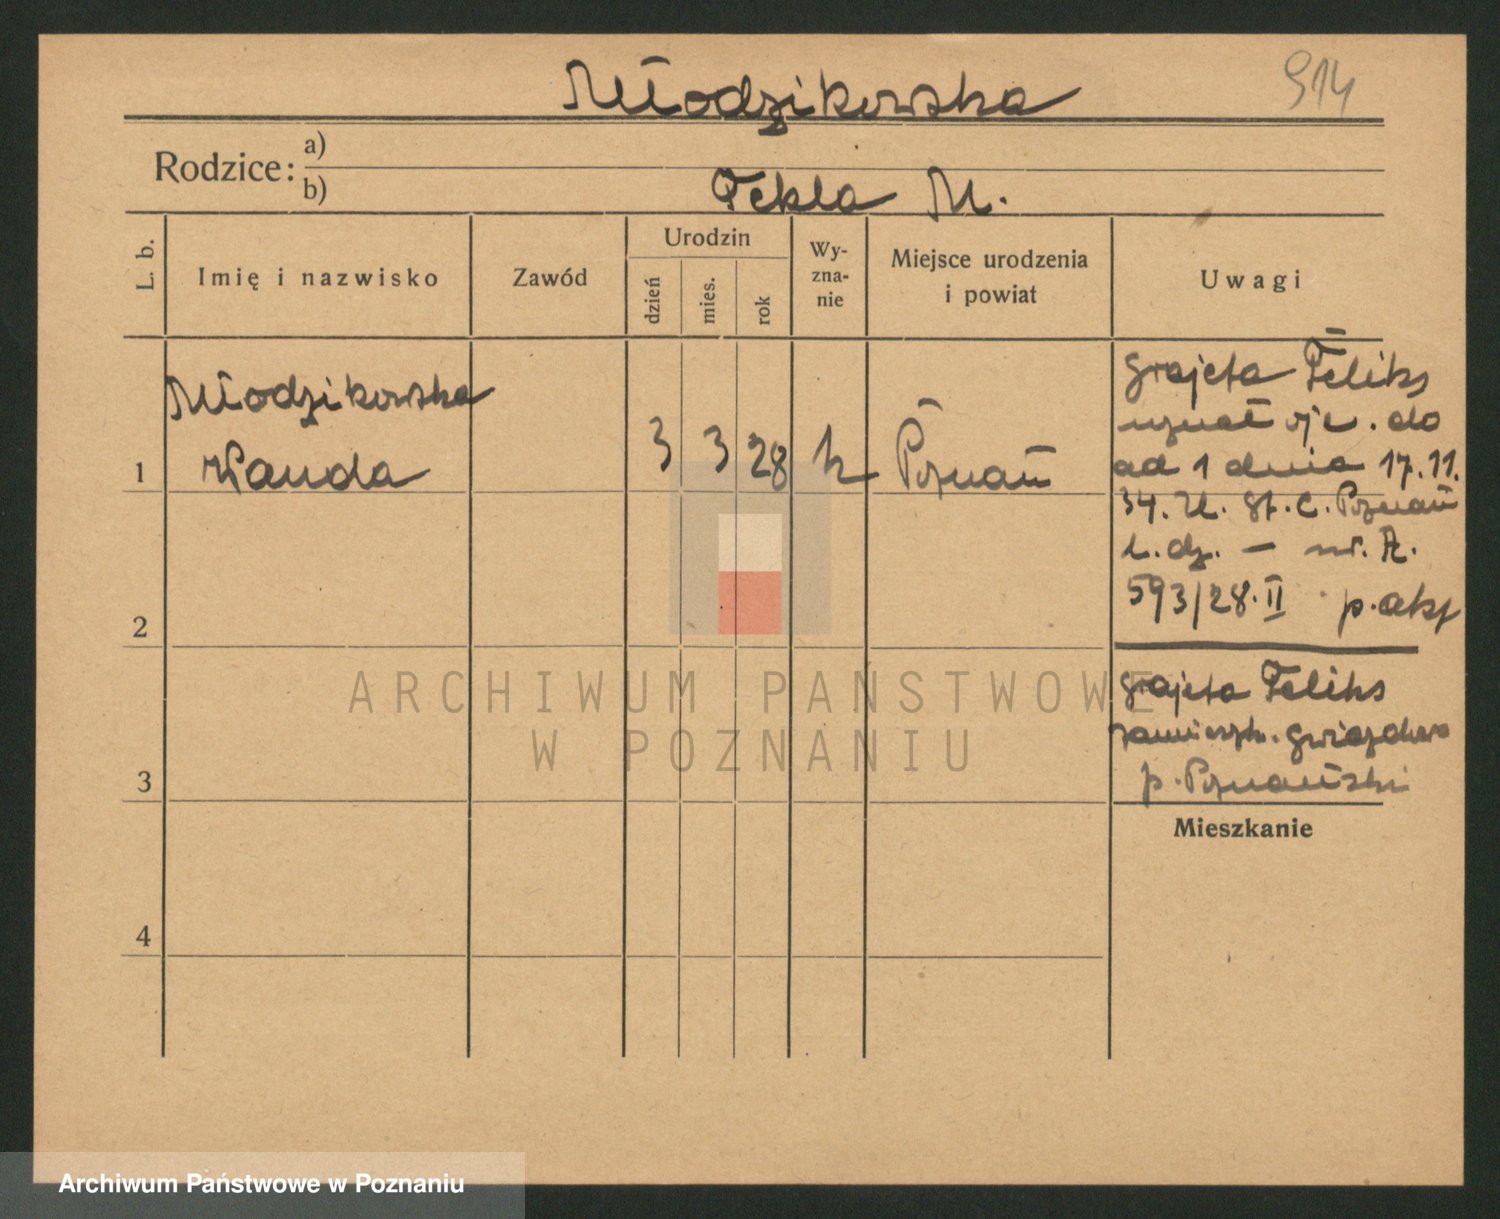 Młodzikowska
914
Rodzice:
a)
b) Tekla M.
L. b.
Imię i nazwisko
Zawód
Urodzin
dzień
mies.
rok
Wy-
zna-
nie
Miejsce urodzenia
i powiat
Uwagi
Młodzikowska
1 Wanda 3 3 28 k Poznań
Grajeta Feliks
uznał ojc. do
ad 1 dnia 17.11.
34. U. St. C. Poznań
L. dz. — nr. A.
593/28. II p. akt
2
Grajeta Feliks
zamieszk.
p. Poznański
3
Mieszkanie
4
ARCHIWUM PAŃSTWOWE
W POZNANIU
Archiwum Państwowe w Poznaniu